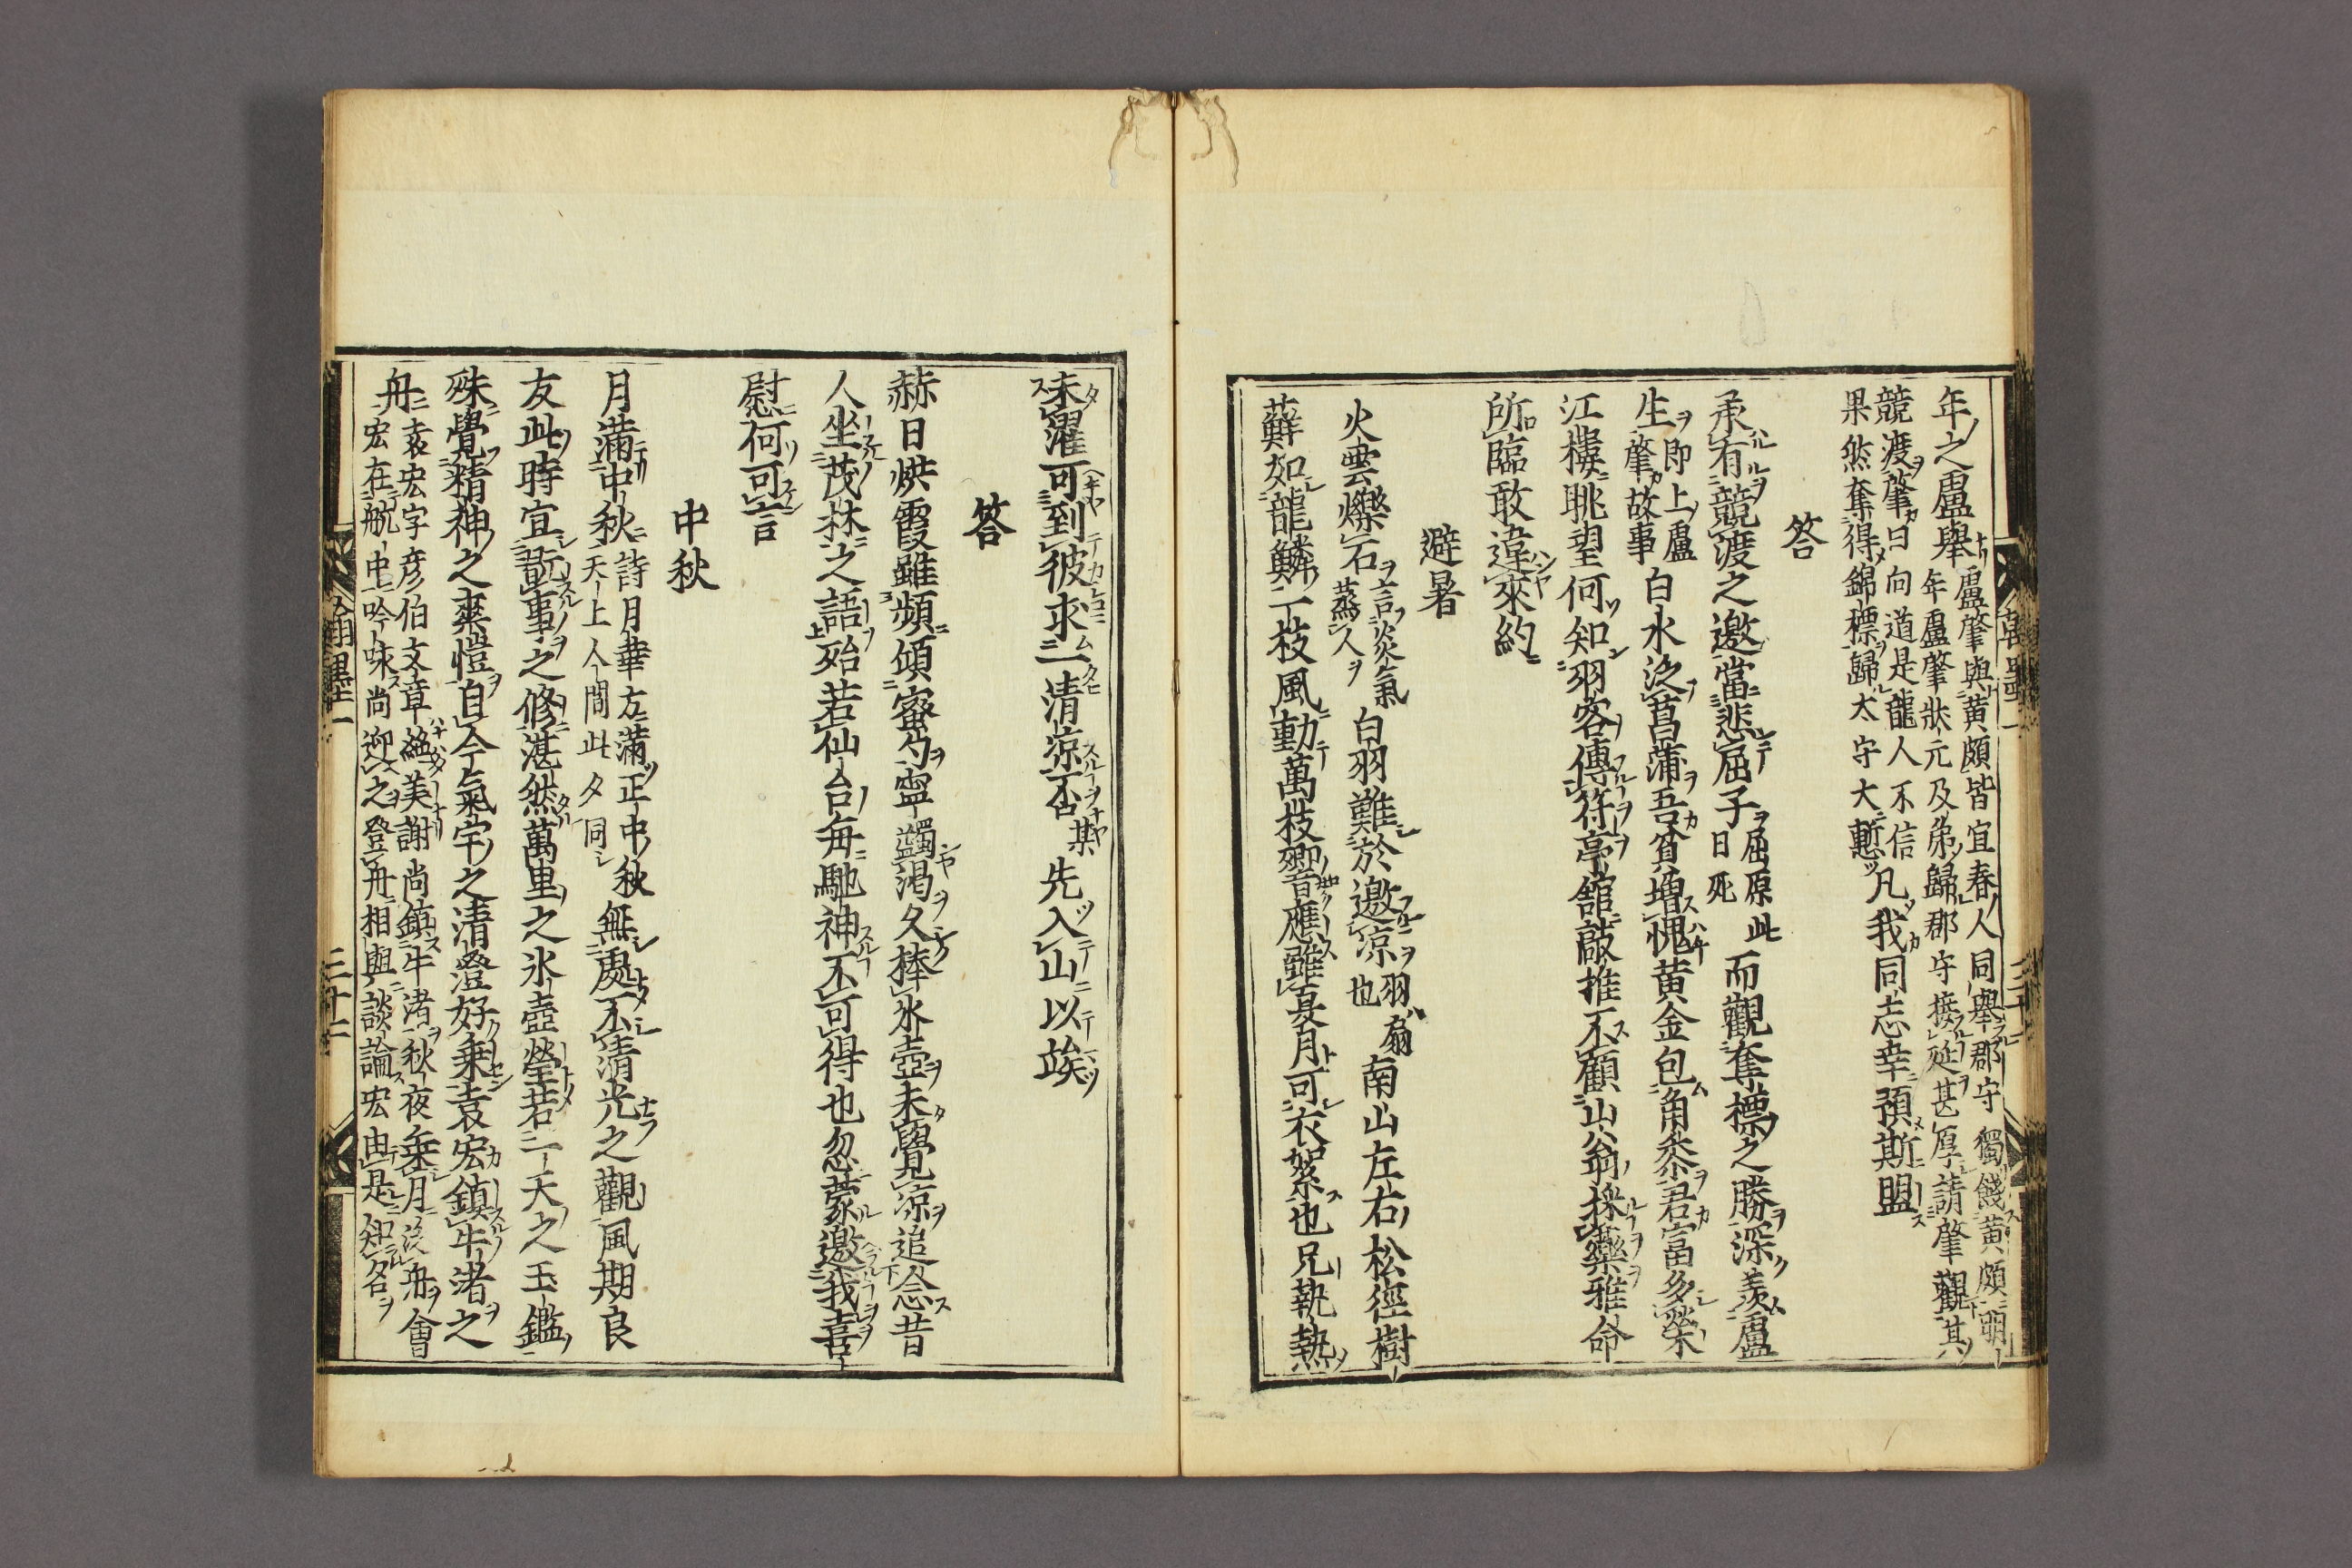 年之盧舉盧肇與黃頗皆宜春人同舉郡守獨餞黃頗明
年盧肇狀元及第歸郡守接延甚厚請肇觀其
競渡肇曰向道是龍人不信
果然奪得錦標歸太守大慙凡我同志幸預斯盟
答
承有競渡之邀當悲屈子屈原此
日死而觀奪標之勝深羨盧
生即上盧
肇故事白水泛菖蒲吾貧增愧黃金包角黍君富多榮
江樓眺望何知羽客傳符亭舘敲推不顧山翁採藥雅命
所臨敢違來約
避暑
火雲爍石言炎氣
蒸人白羽難於邀凉羽扇
也南山左右松徑樹
蘚如龍鱗一枝風動萬枝響應雖夏月可衣絮也兄執熱
未濯可到彼求一清凉否某先入山以竢
答
赫日烘霞雖頻傾蜜勺寧蠲渇久捧氷壺未覺凉追念昔
人坐茂林之語殆若仙台每馳神不可得也忽蒙邀我喜
慰何可言
中秋
月滿中秋詩月華方滿正中秋
天上人間此夕同無處不清光之觀風期良
友此時宜玩事之修湛然萬里之氷壺瑩若一天之玉鑑
殊覺精神之爽愷自今氣宇之清澄好乗袁宏鎮牛渚之
舟袁宏字彦伯文章絶美謝尚鎮牛渚秋夜乗月泛舟會
宏在航中吟咏尚迎之登舟相與談論宏由是知名
翰墨一
三十二